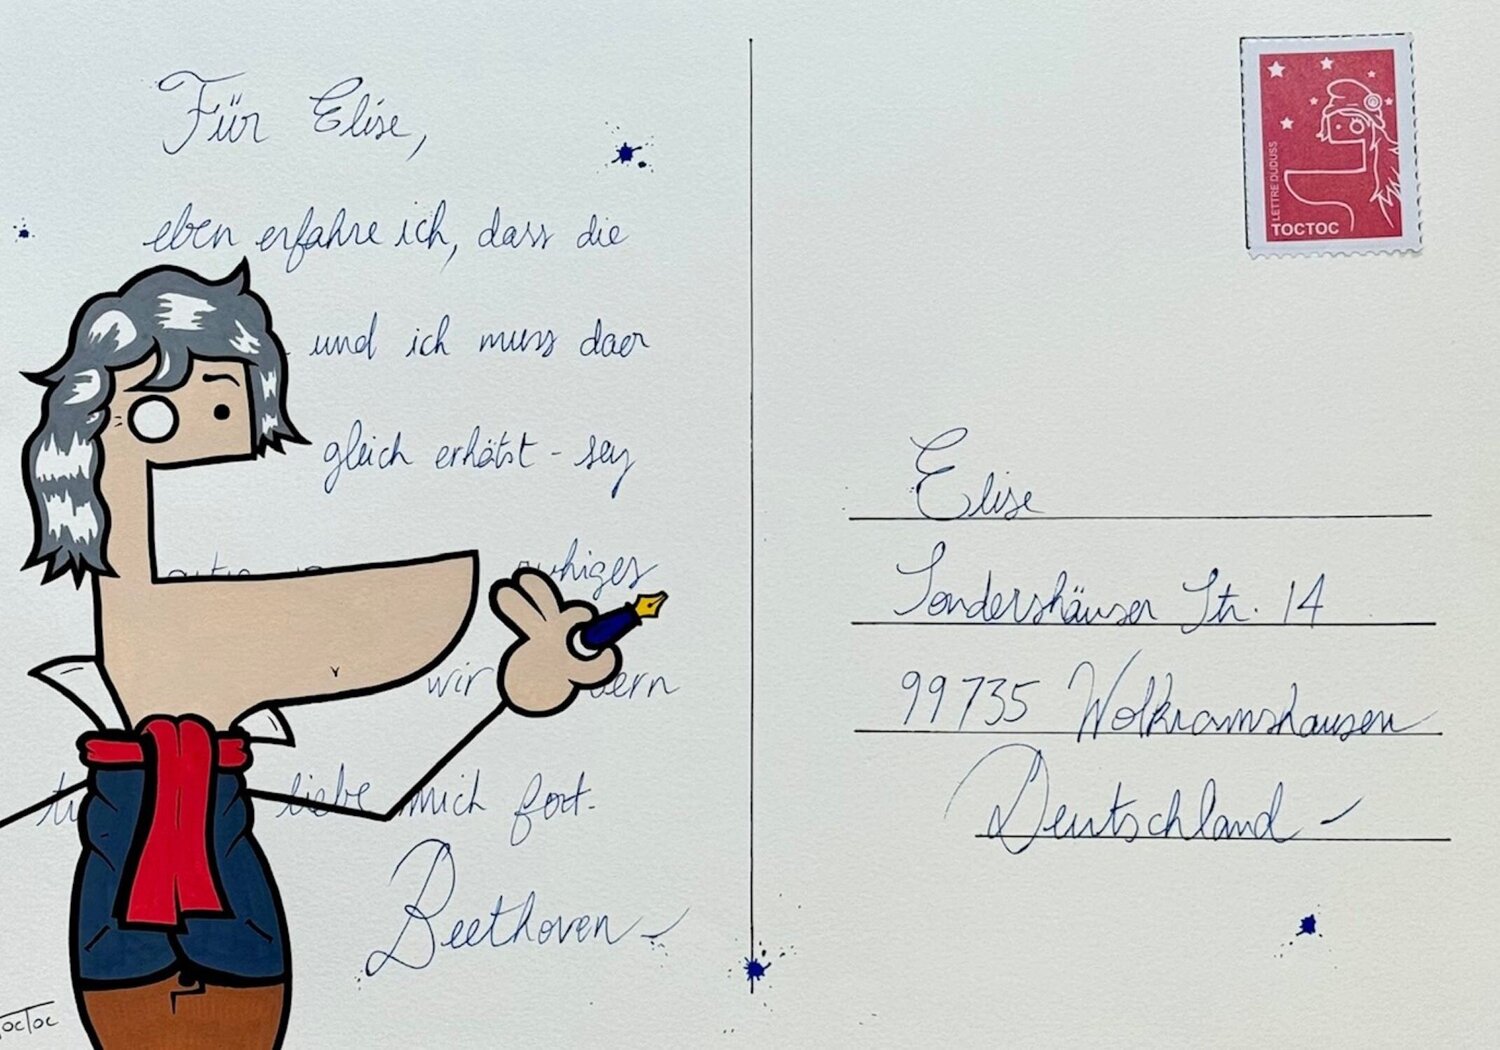 Für Elise,
eben erfahre ich, dass die
und ich muss daer
gleich erhätst - sey
ruhiges
wir
liebe mich fort-
Beethoven
TOCTOC
LETTRE DUDUSS
TOCTOC
Elise
Sondershäuser Str. 14
99735 Wolkramshausen
Deutschland